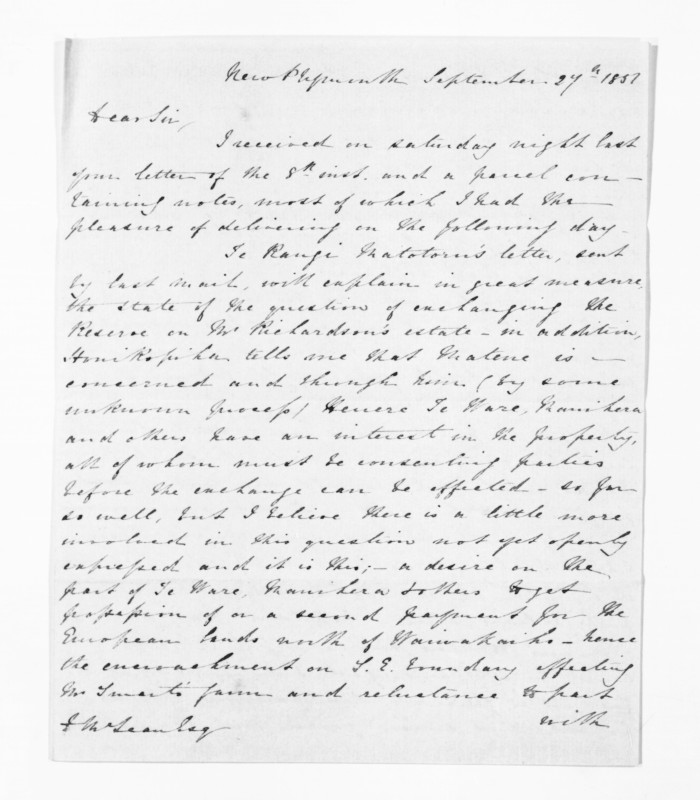 New Plymouth September 27th 1851
Dear Sir,
I received on saturday night last
your letter of the 8th inst. and a parcel con-
taining notes, most of which I had the
pleasure of delivering on the following day.
Te Rangi Matotoru's letter, sent
by last mail, will explain in great measure,
the state of the question of exchanging the
Reserve on Mr Richardson's estate - in addition,
Honi Ropiha tells me that Matene is -
concerned and through him (by some
unknown process) Henere Te Ware, Manihera
and others have an interest in the property,
all of whom must be consenting parties
before the exchange can be effected - so far
so well, but I believe there is a little more
involved in this question not yet openly
expressed and it is this; - a desire on the
part of Te Ware, Manihera & others to get
possession of or a second payment for the
European lands north of Waiwakaiho - hence
the encroachment on S. E. boundary affecting
Mr Smart's farm and reluctance to part
with
D McLean Esq